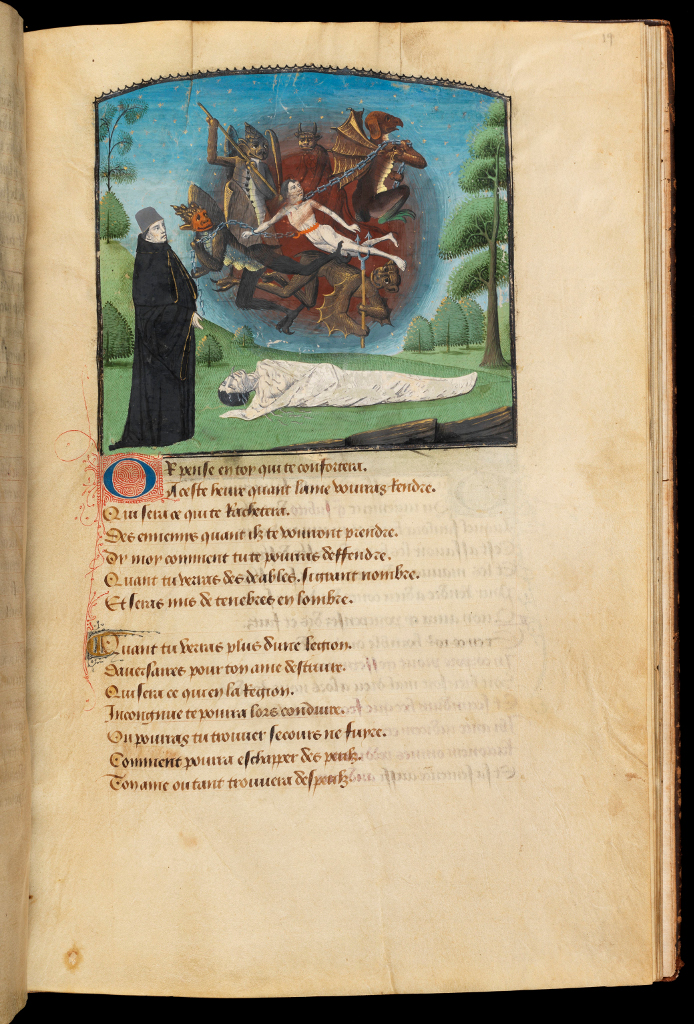 19
Or pense en toy qui te confortera.
A ceste heure quant lame vourras Rendre.
Qui sera ce qui te Rachetera.
Des ennemis quant ilz te vouront prendre.
Dy moy comment tu te pouras deffendre.
Quant tu verras des deables. si grant nombre.
Et seras mis de tenebres en lombre.
Quant tu verras plus dune legion.
Daversaires pour ton ame destruire.
Qui sera ce qui en la Region.
Incongnue te poura lors conduire.
Ou pouras tu trouver secours ne fuyre.
Comment poura eschapper des perilz.
Ton ame ou tant trouvera desperilz.